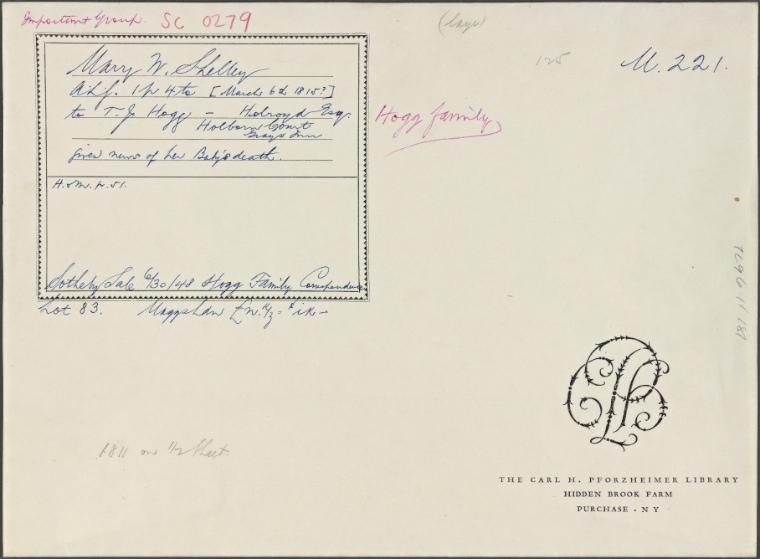 Important Group. SC 0279
(Says)
125
M. 221.
Mary W. Shelley
A.L.S. 1p 4to [March 6th 1815?]
to T. J. Hogg - Holroyd Esq.
Holborn Court
Grays Inn
gives news of her Baby's death.
Hogg family
H. & M. p. 51.
Sotheby Sale 6/30/48 Hogg Family Correspondence
Lot 83. Maggs
1811 on 1/2 sheet
THE CARL H. PFORZHEIMER LIBRARY
HIDDEN BROOK FARM
PURCHASE . N Y